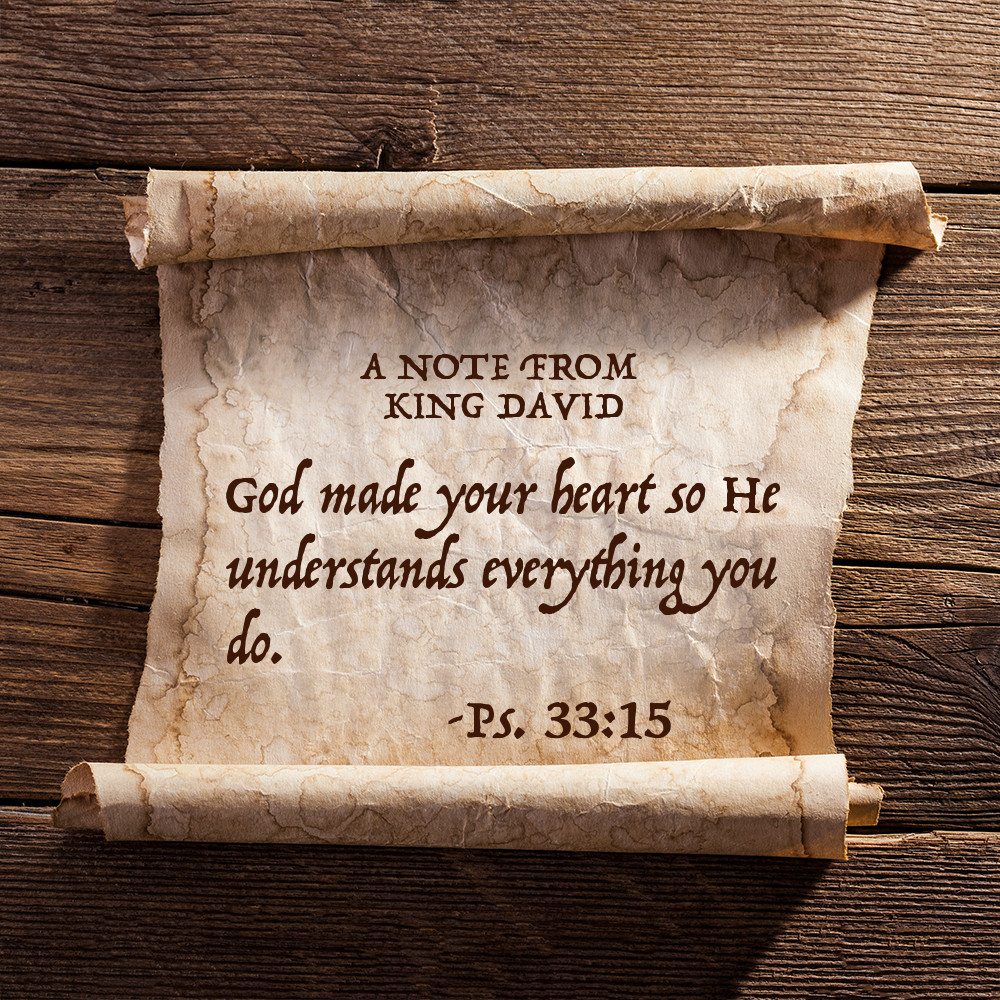 A NOTE FROM
KING DAVID
God made your heart so He
understands everything you
do.
-Ps. 33:15